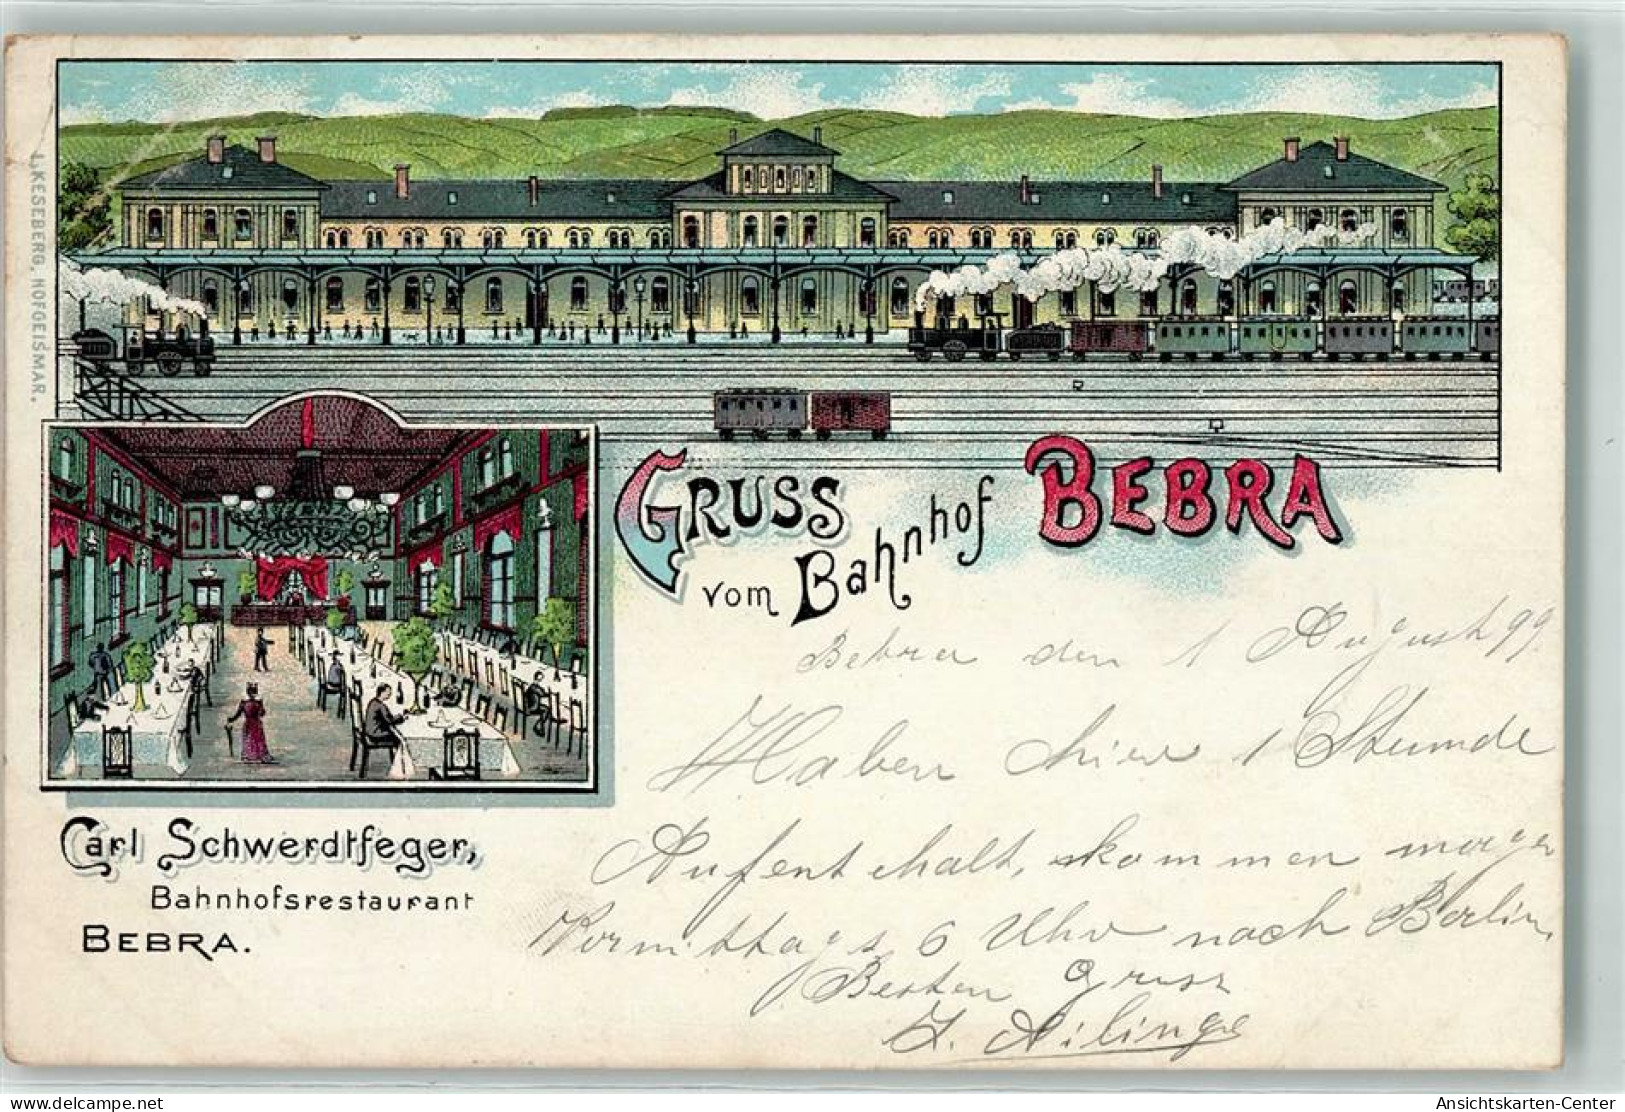 L. KESEBERG, HOFGEISMAR.
GRUSS
vom Bahnhof BEBRA
Carl Schwerdtfeger,
Bahnhofsrestaurant
BEBRA.
Bebra den 1 August 99.
Haben hier 1 Stunde
Aufenthalt, kommen morgen
Vormittags 6 Uhr nach Berlin.
Besten Gruss
delcampe.net
Ansichtskarten-Center